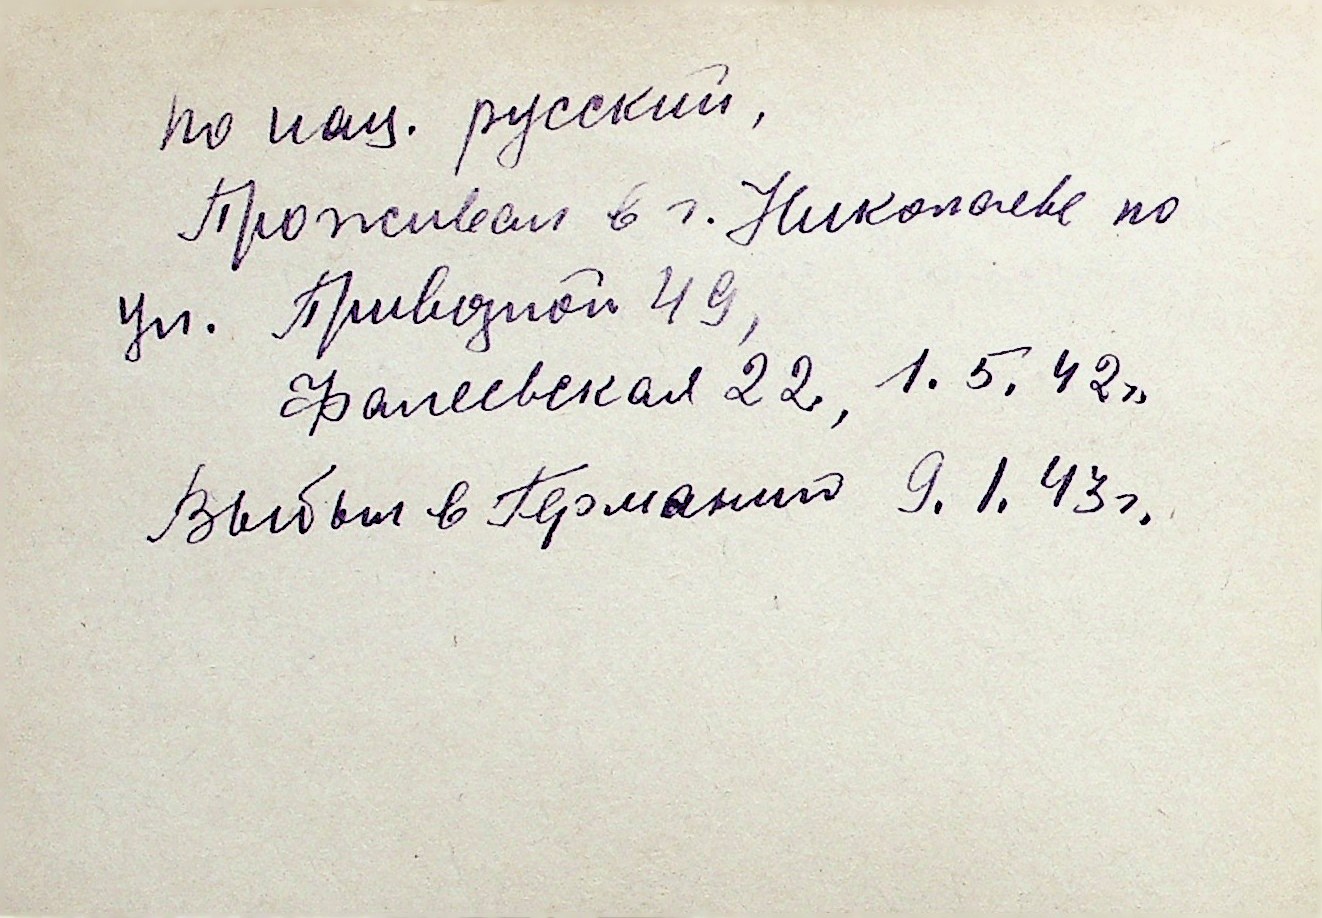 по нац. русский,
Проживал в г. Николаеве по
ул. Приводной 49,
Фалеевская 22, 1.5.42г.
Выбыл в Германию 9.1.43г.